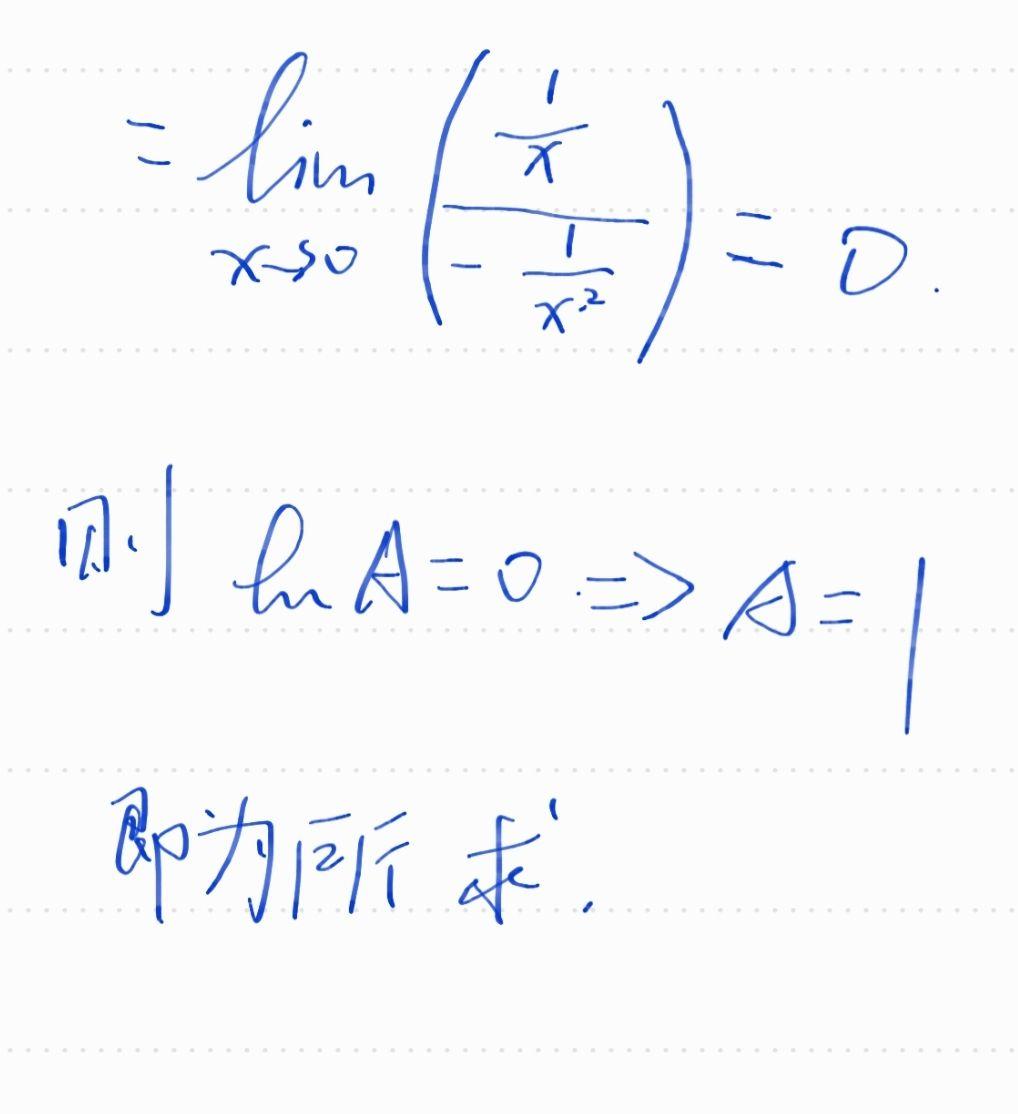 = lim x→0 ( (1/x) / (- 1/x²) ) = 0.
则 ln A = 0 ⇒ A = 1
即为所求.